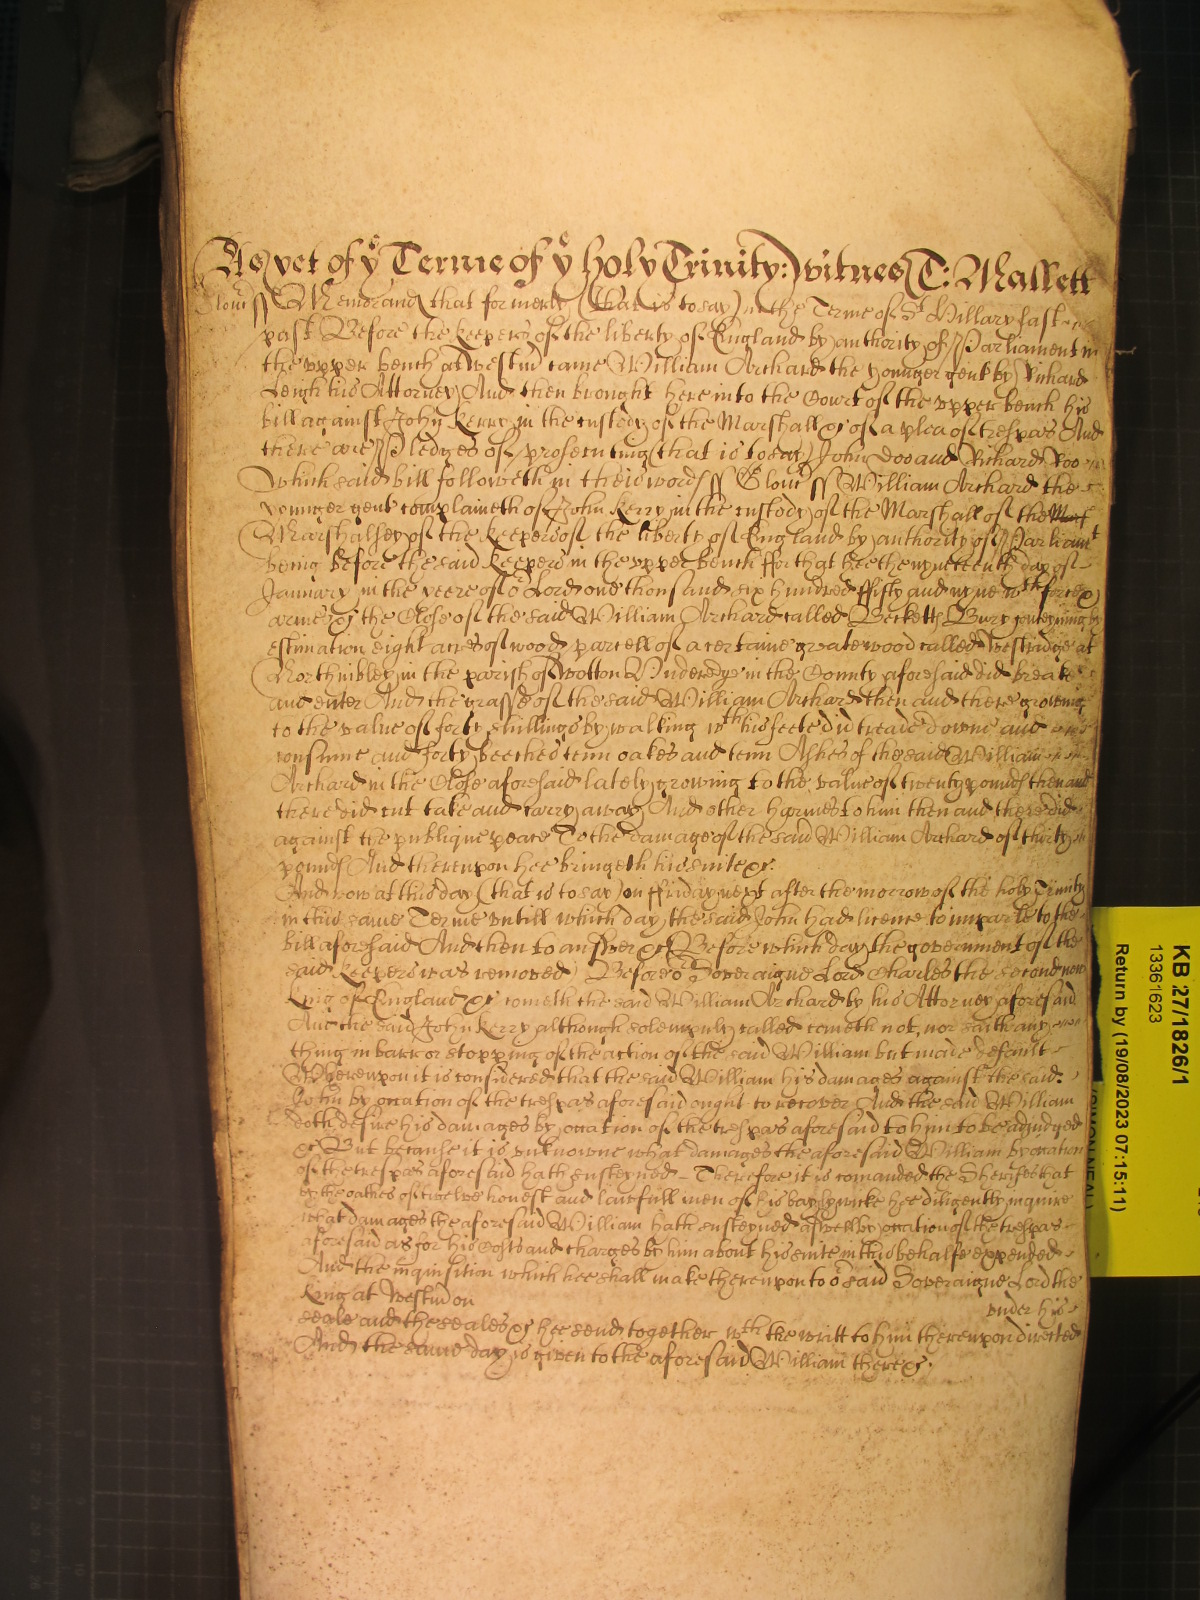 As yet of ye Terme of ye holy Trinity: witnes T: Mallett
Glouc ss Memorand that formerly (that is to say) in the Terme of St Hillary last
past Before the keepers of the liberty of England by authority of Parliament in
the upper bench at Westmr came William Archard the younger gent by Richard
Leigh his Attorney And then brought here into the Court of the upper bench his
bill against John Kerry in the custody of the Marshall &c of a plea of trespas And
there are Pledges of prosecuting (that is to say) John Doo and Richard Roo
Which said bill followeth in theis words ss Glouc ss William Archard the
younger gent complaineth of John Kerry in the custody of the Marshall of the
Marshalsey of the keepers of the liberty of England by authority of Parliamt
being before the said keepers in the upper bench ffor that hee the nyneteenth day of
January in the yeere of or Lord one thousand six hundred ffifty and nyne wth force &
armes &c the Close of the said William Archard called Becketts Bury conteyning by
estimation eight acres of wood parcell of a certaine greate wood called Westridge at
Northnibley in the parish of Wotton Underedge in the County aforesaid did breake
and enter And the grasse of the said William Archard then and there growing
to the value of forty shillings by walking wth his feete did treade downe and
consume and forty beeches tenn oakes and tenn Ashes of the said William
Archard in the Close aforesaid lately growing to the value of twenty pounds then and
there did cut take and carry away And other harmes to him then and there did
against the publique peace To the damage of the said William Archard of thirty
pounds And thereupon hee bringeth his suite &c.
And now at this day (that is to say) on ffriday next after the morrow of the holy Trinity
in this same Terme untill which day the said John had licence to imparle to the
bill aforesaid And then to answer &c Before which day the government of the
said keepers was removed Before or Soveraigne Lord Charles the second now
King of England &c cometh the said William Archard by his Attorney aforesaid
And the said John Kerry although solempnly called cometh not, nor saith any
thing in barr or stopping of the action of the said William but made default
Whereupon it is considered that the said William his damages against the said
John by occation of the trespas aforesaid ought to recover And the said William
doth desire his damages by occation of the trespas aforesaid to him to be adjudged
&c But because it is unknowne what damages the aforesaid William by occation
of the trespas aforesaid hath susteyned Therefore it is comanded the Sheriffe that
by the oathes of twelve honest and lawfull men of his baylywicke hee diligently inquire
what damages the aforesaid William hath susteyned aswell by occation of the trespas
aforesaid as for his Costs and charges by him about his suite in this behalfe expended
And the inquisition which hee shall make thereupon to or said Soveraigne Lord the
King at Westmr on under his
seale and the seales &c hee send together wth the writt to him thereupon directed
And the same day is given to the aforesaid William there &c.
KB 27/1826/1
13361623
Return by (19/08/2023 07:15:11)